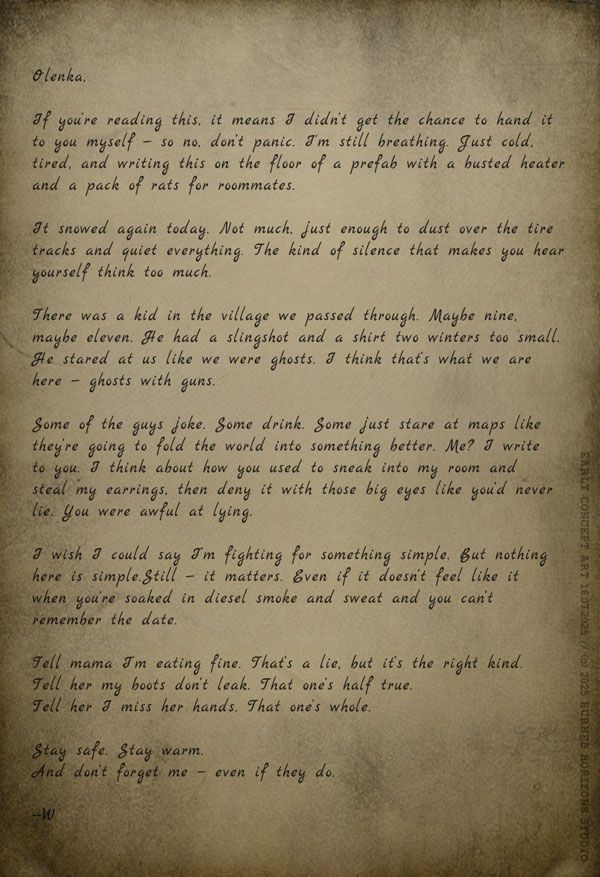 Olenka,
If you're reading this, it means I didn't get the chance to hand it
to you myself – so no, don't panic. I'm still breathing. Just cold,
tired, and writing this on the floor of a prefab with a busted heater
and a pack of rats for roommates.
It snowed again today. Not much, just enough to dust over the tire
tracks and quiet everything. The kind of silence that makes you hear
yourself think too much.
There was a kid in the village we passed through. Maybe nine,
maybe eleven. He had a slingshot and a shirt two winters too small.
He stared at us like we were ghosts. I think that's what we are
here – ghosts with guns.
Some of the guys joke. Some drink. Some just stare at maps like
they're going to fold the world into something better. Me? I write
to you. I think about how you used to sneak into my room and
steal my earrings, then deny it with those big eyes like you'd never
lie. You were awful at lying.
I wish I could say I'm fighting for something simple. But nothing
here is simple.Still – it matters. Even if it doesn't feel like it
when you're soaked in diesel smoke and sweat and you can't
remember the date.
Tell mama I'm eating fine. That's a lie, but it's the right kind.
Tell her my boots don't leak. That one's half true.
Tell her I miss her hands. That one's whole.
Stay safe. Stay warm.
And don't forget me – even if they do.
–W
EARLY CONCEPT ART 16.07.2025 // (c) 2025 BURNED HORIZONS STUDIO